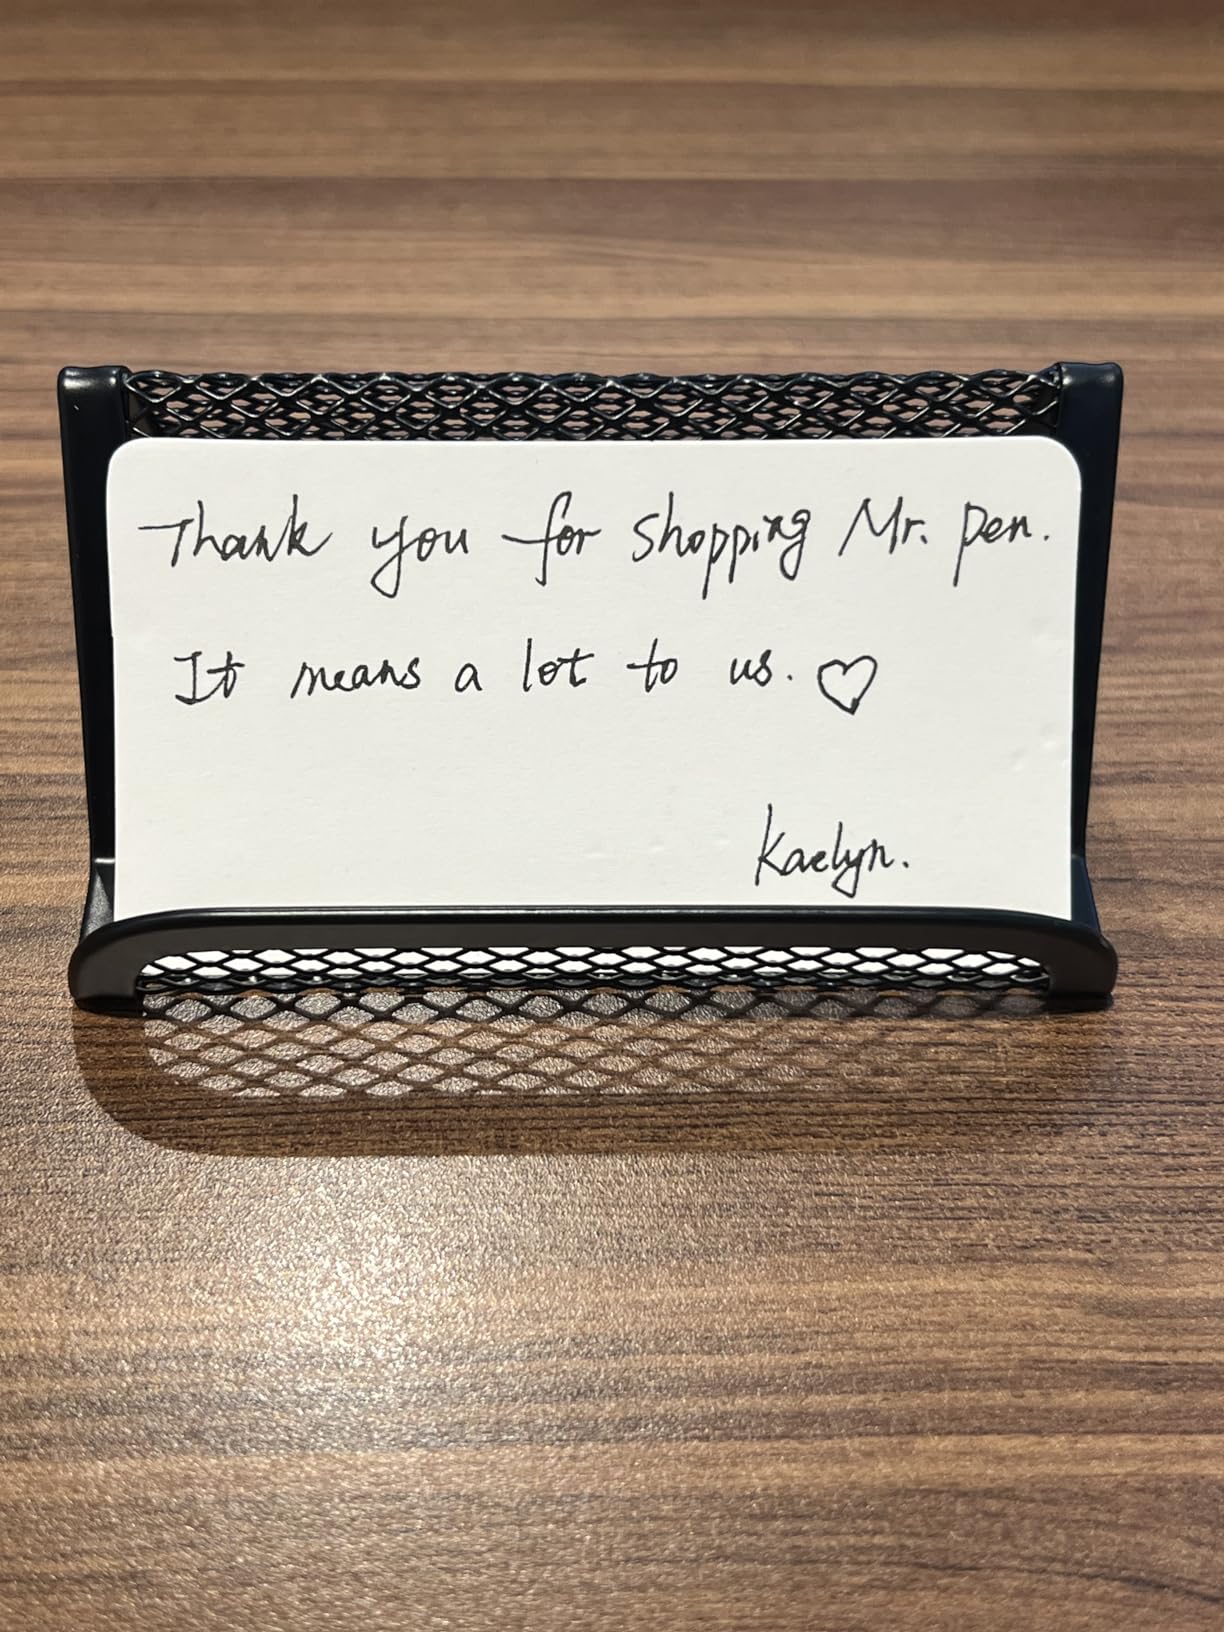 Thank you for shopping Mr. Pen.
It means a lot to us. ♡
Kaelyn.